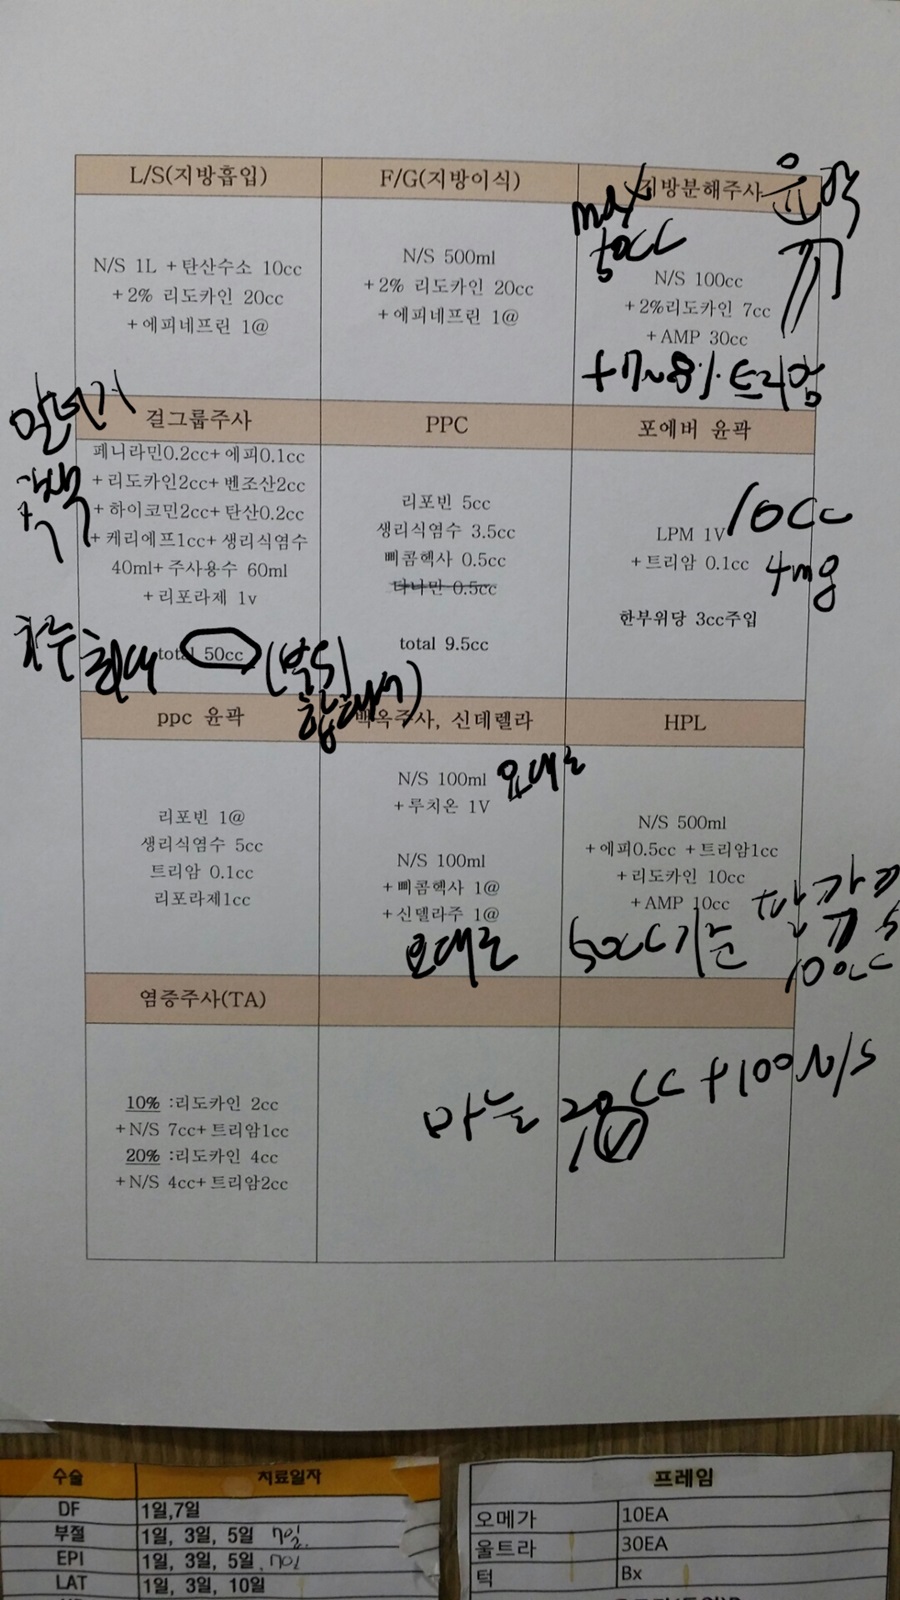 L/S(지방흡입)
N/S 1L +탄산수소 10cc
+2% 리도카인 20cc
+에피네프린 1@
F/G(지방이식)
N/S 500ml
+2% 리도카인 20cc
+에피네프린 1@
지방분해주사
윤곽
max
50cc
N/S 100cc
+2%리도카인 7cc
+AMP 30cc
+7~8% 트리암
걸그룹주사
페니라민0.2cc+에피0.1cc
+리도카인2cc+벤조산2cc
+하이코민2cc+탄산0.2cc
+케리에프1cc+생리식염수
40ml+주사용수 60ml
+리포라제 1v
total 50cc
PPC
리포빈 5cc
생리식염수 3.5cc
삐콤헥사 0.5cc
total 9.5cc
포에버 윤곽
LPM 1V 10cc
+트리암 0.1cc 4mg
한부위당 3cc주입
ppc 윤곽
리포빈 1@
생리식염수 5cc
트리암 0.1cc
리포라제1cc
백옥주사, 신데렐라
N/S 100ml 요대로
+루치온 1V
N/S 100ml
+삐콤헥사 1@
+신델라주 1@
요대로
HPL
N/S 500ml
+에피0.5cc +트리암1cc
+리도카인 10cc
+AMP 10cc
50cc기준
100cc
염증주사(TA)
10% :리도카인 2cc
+N/S 7cc+트리암1cc
20% :리도카인 4cc
+N/S 4cc+트리암2cc
마늘 20cc +100 N/S
1V
수술 치료일자
DF 1일,7일
부절 1일, 3일, 5일 7일
EPI 1일, 3일, 5일 7일
LAT 1일, 3일, 10일
프레임
오메가 10EA
울트라 30EA
턱 Bx